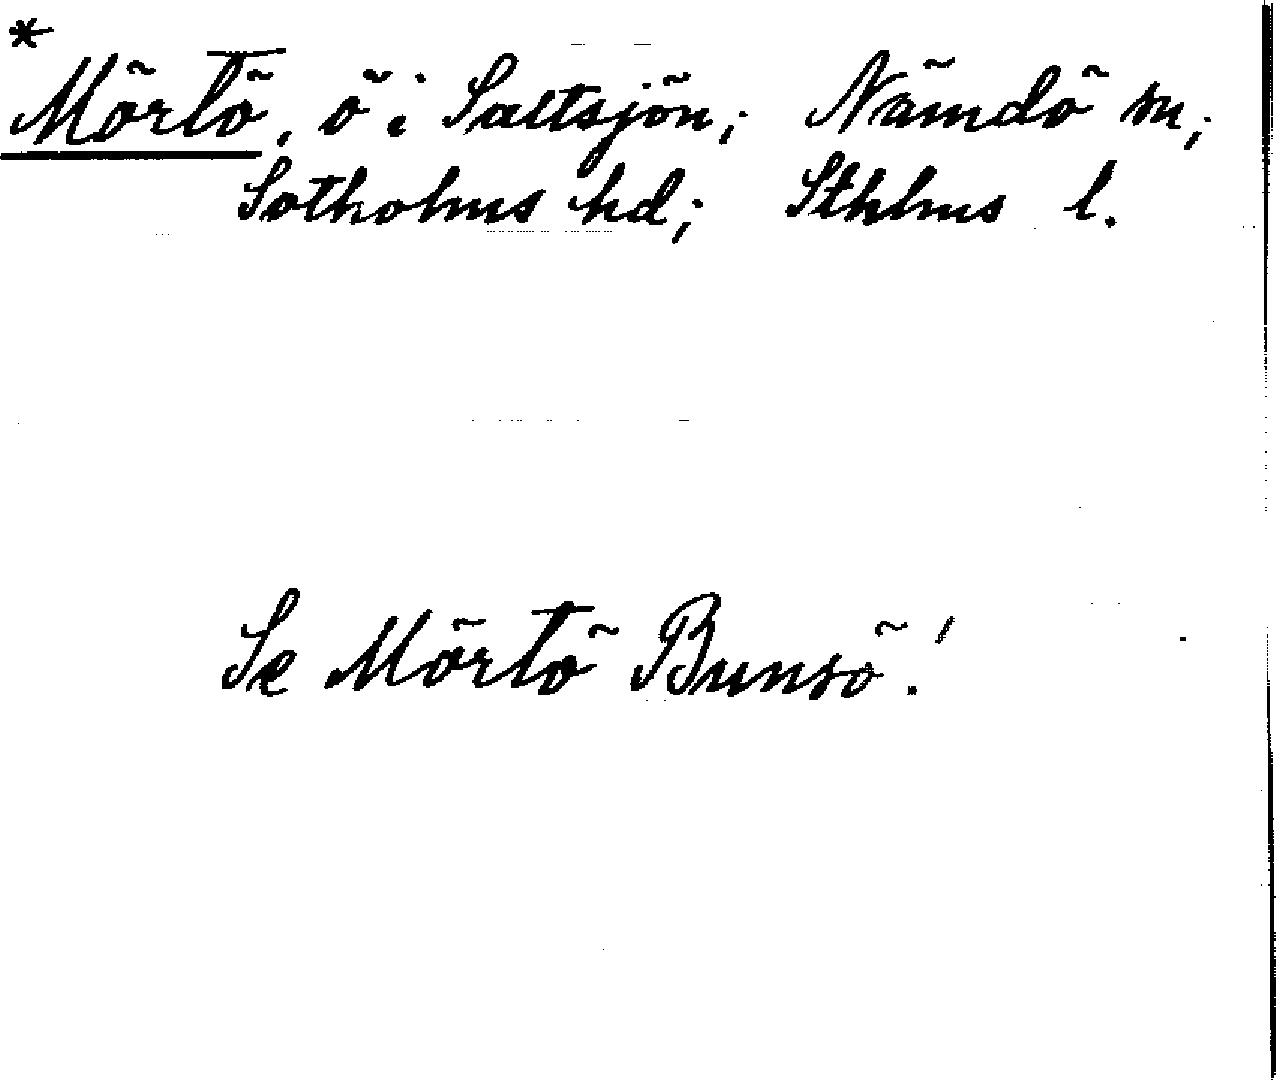 *
Mörtö, ö i Saltsjön; Nämdö sn;
Sotholms hd; Sthlms l.
Se Mörtö Bunsö!